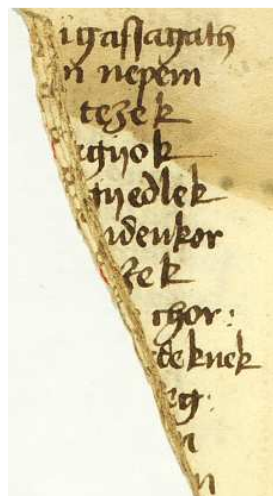 igassagath
n nepem
tezek
egyok
tyedlek
ndenkor
zek
chor:
deknek
eg:
n
n